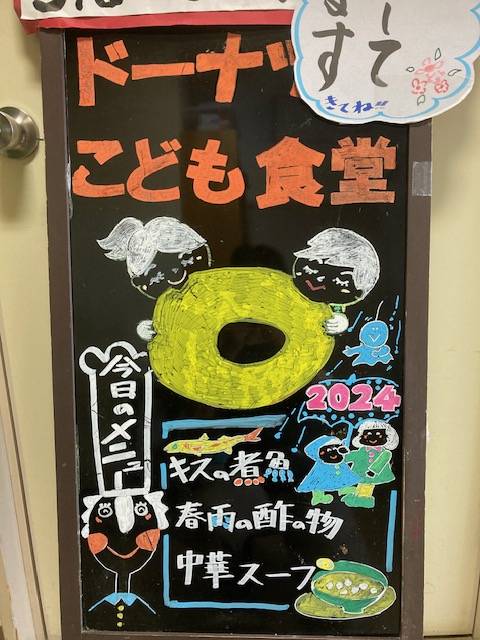 して
す
きてね!!
ドーナツ
こども食堂
今日のメニュー
2024
キスの煮魚
春雨の酢の物
中華スープ